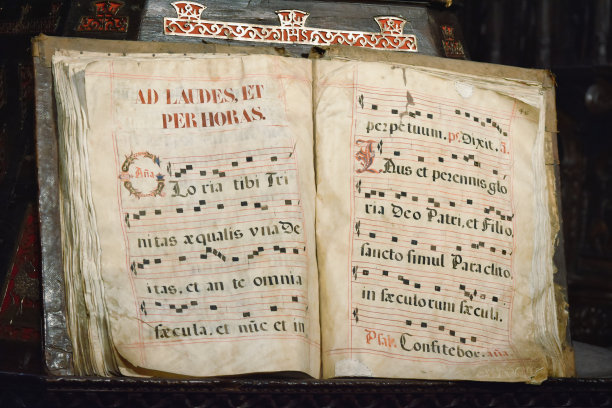 IHS
AD LAUDES, ET
PER HORAS.
Aña
Loria tibi Tri
nitas æqualis vna De
itas, et an te omnia
sæcula, et nũc et in
perpetuum. ps. Dixit. a.
Laus et perennis glo
ria Deo Patri, et Filio,
sancto simul Paraclito,
in sæculorum sæcula.
Psal. Confitebor. aña